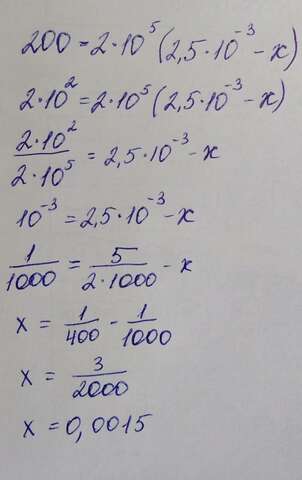 200 = 2·10⁵(2,5·10⁻³ - x)
2·10² = 2·10⁵(2,5·10⁻³ - x)
2·10²/2·10⁵ = 2,5·10⁻³ - x
10⁻³ = 2,5·10⁻³ - x
1/1000 = 5/2·1000 - x
x = 1/400 - 1/1000
x = 3/2000
x = 0,0015